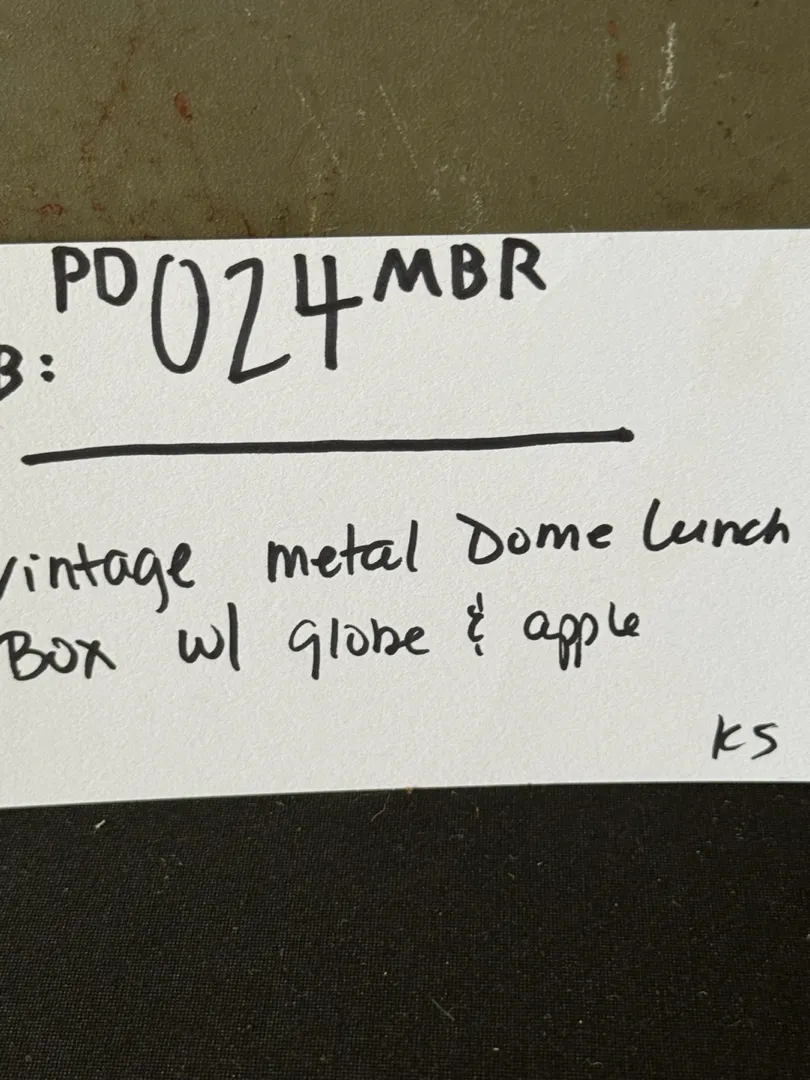 PD 024 MBR
B:
vintage metal Dome lunch
Box w/ globe & apple
KS